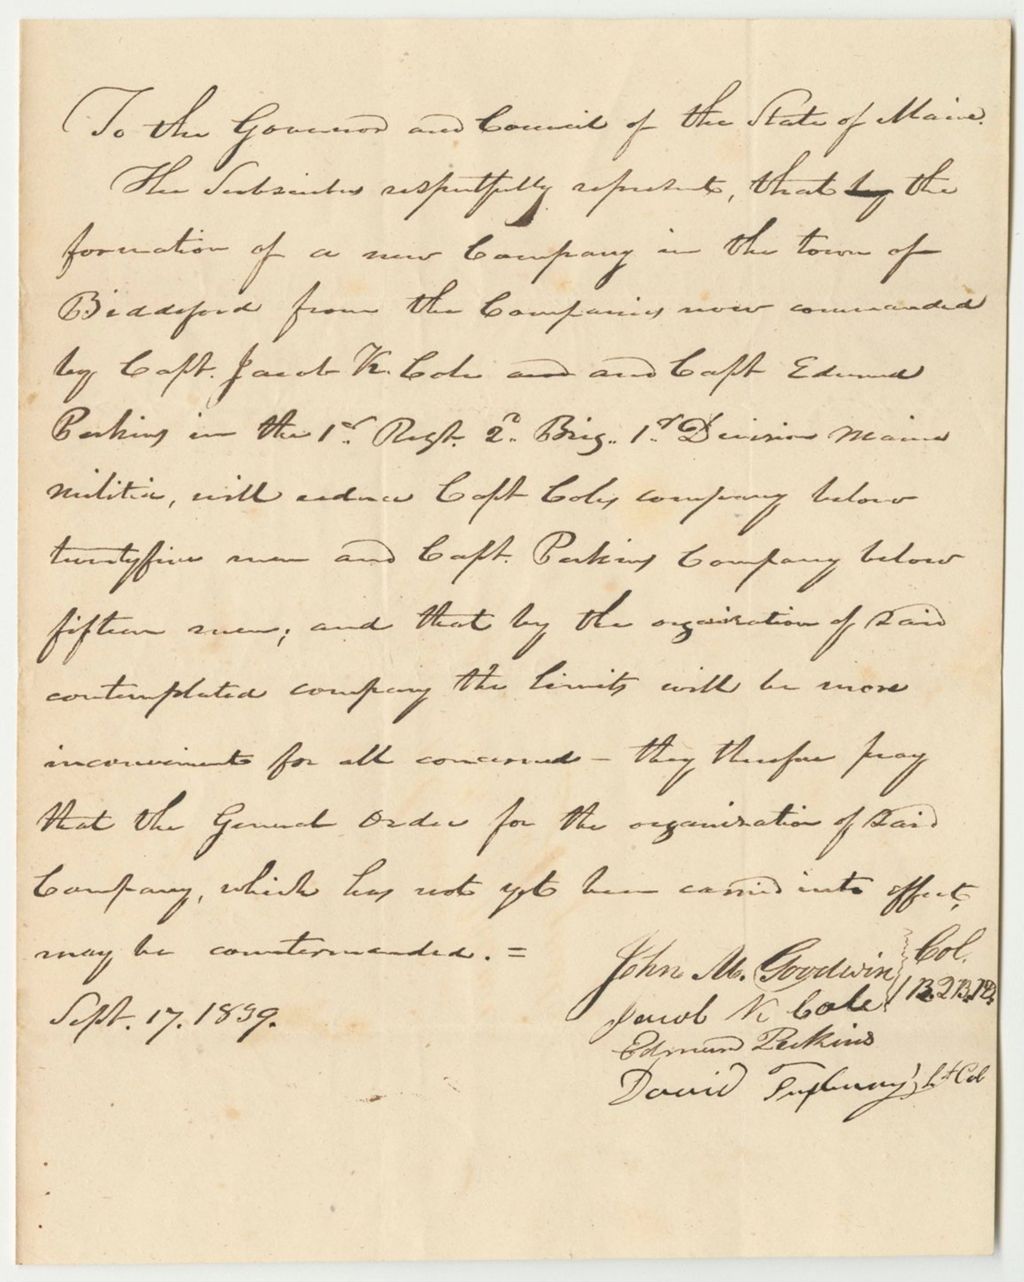 To the Governor and Council of the State of Maine.
The Subscribers respectfully represent, that by the
formation of a new Company in the town of
Biddeford from the Companies now commanded
by Capt. Jacob K. Cole and and Capt Edmund
Perkins in the 1st. Regt. 2d. Brig. 1st Division Maine
militia, will reduce Capt Coles company below
twentyfive men and Capt. Perkins Company below
fifteen men; and that by the organization of said
contemplated company the limits will be more
inconvenient for all concerned - they therefore pray
that the General Order for the organization of said
Company, which has not yet been carried into effect,
may be countermanded. =
Sept. 17. 1839.
John M. Goodwin Col.
Jacob K Cole
Edmund Perkins
David Lt Col